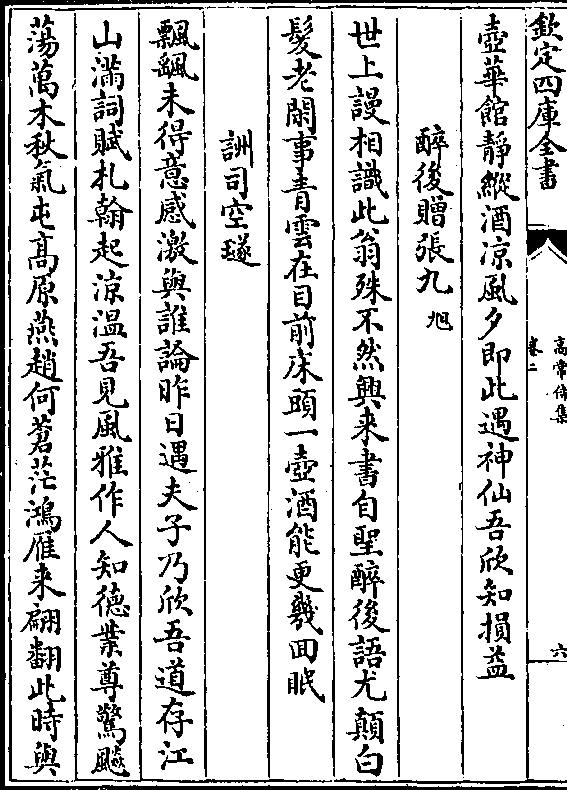 欽定四庫全書
高常侍集
卷二
六
壺華館靜縱酒凉風夕即此遇神仙吾欣知損益
醉後贈張九旭
世上謾相識此翁殊不然興来書自聖醉後語尤顛白
髮老閑事青雲在目前床頭一壺酒能更幾回眠
詶司空璲
飄颻未得意感激與誰論昨日遇夫子乃欣吾道存江
山滿詞賦札翰起涼溫吾見風雅作人知德業尊驚飈
蕩萬木秋氣屯髙原燕趙何蒼茫鴻雁来翩翻此時與